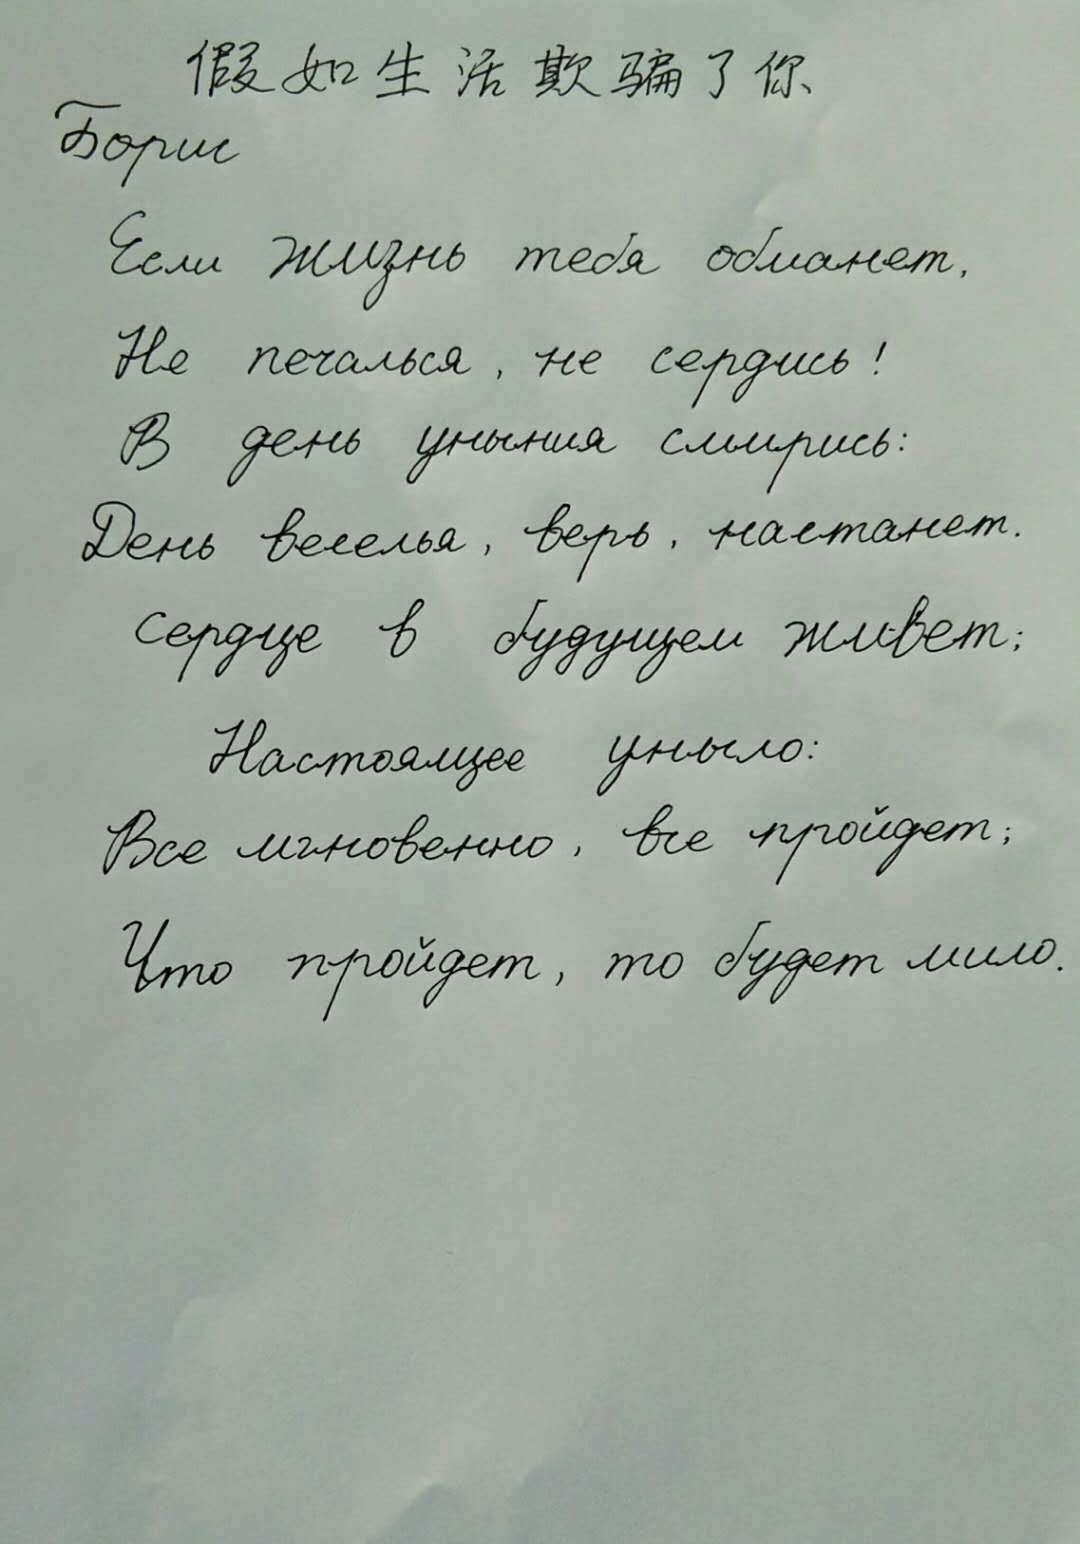 假如生活欺骗了你
Борис
Если жизнь тебя обманет,
Не печалься, не сердись!
В день уныния смирись:
День веселья, верь, настанет.
Сердце в будущем живет;
Настоящее уныло:
Все мгновенно, все пройдет;
Что пройдет, то будет мило.